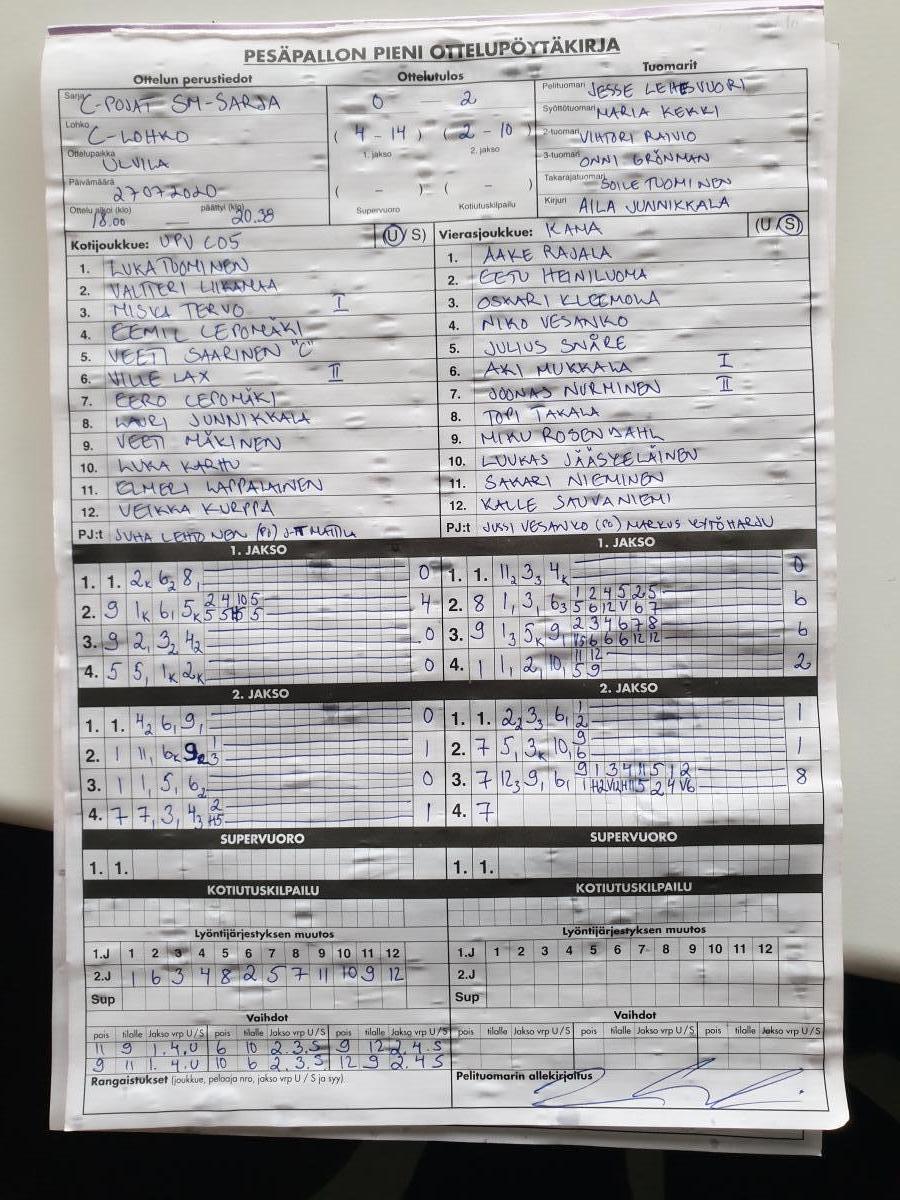 PESÄPALLON PIENI OTTELUPÖYTÄKIRJA
Ottelun perustiedot
Sarja C-POJAT SM-SARJA
Lohko C-LOHKO
Ottelupaikka ULVILA
Päivämäärä 27072020
Ottelu alkoi (klo) päättyi (klo)
18.00 — 20.38
Ottelutulos
0 2
( 4 - 14 ) ( 2 - 10 )
1. jakso 2. jakso
( - ) ( - )
Supervuoro Kotiutuskilpailu
Tuomarit
Pelituomari JESSE LEHESVUORI
Syöttötuomari MARIA KEKKI
2-tuomari VIHTORI RAIVIO
3-tuomari ONNI GRÖNMAN
Takarajatuomari SOILE TUOMINEN
Kirjuri AILA JUNNIKKALA
Kotijoukkue: UPV C05 (U/S)
1. LUKA TUOMINEN
2. VALTTERI LIIKAMAA
3. MISKA TERVO I
4. EEMIL LEPOMÄKI
5. VEETI SAARINEN "C"
6. VILLE LAX II
7. EERO LEPOMÄKI
8. LAURI JUNNIKKALA
9. VEETI MÄKINEN
10. LUKA KARHU
11. ELMERI LAPPALAINEN
12. VEIKKA KURPPA
PJ:t JUHA LEHTONEN (PJ) MATTILA
Vierasjoukkue: KAMA (U/S)
1. AAKE RAJALA
2. EETU HEINILUOMA
3. OSKARI KLEEMOLA
4. NIKO VESANKO
5. JULIUS SNÅRE
6. AKI MUKKALA I
7. JOONAS NURMINEN II
8. TOPI TAKALA
9. MIKU ROSENDAHL
10. LUUKAS JÄÄSKELÄINEN
11. SAKARI NIEMINEN
12. KALLE SAUVANIEMI
PJ:t JUSSI VESANKO (PJ) MARKUS
1. JAKSO
1. 1. 2K 62 8, 0
2. 9 1K 6, 5K 4
3. 9 2, 32 42 0
4. 5 5, 1K 2K 0
1. JAKSO
1. 1. 112 33 4K 0
2. 8 1, 3, 63 1 2 4 5 2 5 6
5 6 12 V 6 7
3. 9 13 5K 9, 2 3 4 6 7 8 6
4. 1 1, 2, 10, 11 12 2
5 9
2. JAKSO
1. 1. 42 6, 9, 0
2. 1 11, 6K 1
3. 1 1, 5, 62 0
4. 7 7, 3, 43 2 1
2. JAKSO
1. 1. 22 33 6, 1 1
2
2. 7 5, 3K 10, 9 1
6
3. 7 123 9, 6, 8
4. 7
SUPERVUORO
1. 1.
SUPERVUORO
1. 1.
KOTIUTUSKILPAILU
KOTIUTUSKILPAILU
Lyöntijärjestyksen muutos
1.J 1 2 3 4 5 6 7 8 9 10 11 12
2.J 1 6 3 4 8 2 5 7 11 10 9 12
Sup
Lyöntijärjestyksen muutos
1.J 1 2 3 4 5 6 7 8 9 10 11 12
2.J
Sup
Vaihdot
pois tilalle Jakso vrp U/S pois tilalle Jakso vrp U/S pois tilalle Jakso vrp U/S
11 9 1. 4. U 6 10 2. 3. S 9 12 2. 4. S
9 11 1. 4. U 10 6 2. 3. S 12 9 2. 4 S
Vaihdot
pois tilalle Jakso vrp U/S pois tilalle Jakso vrp U/S pois tilalle Jakso vrp U/S
Rangaistukset (joukkue, pelaaja nro, jakso vrp U / S ja syy)
Pelituomarin allekirjoitus